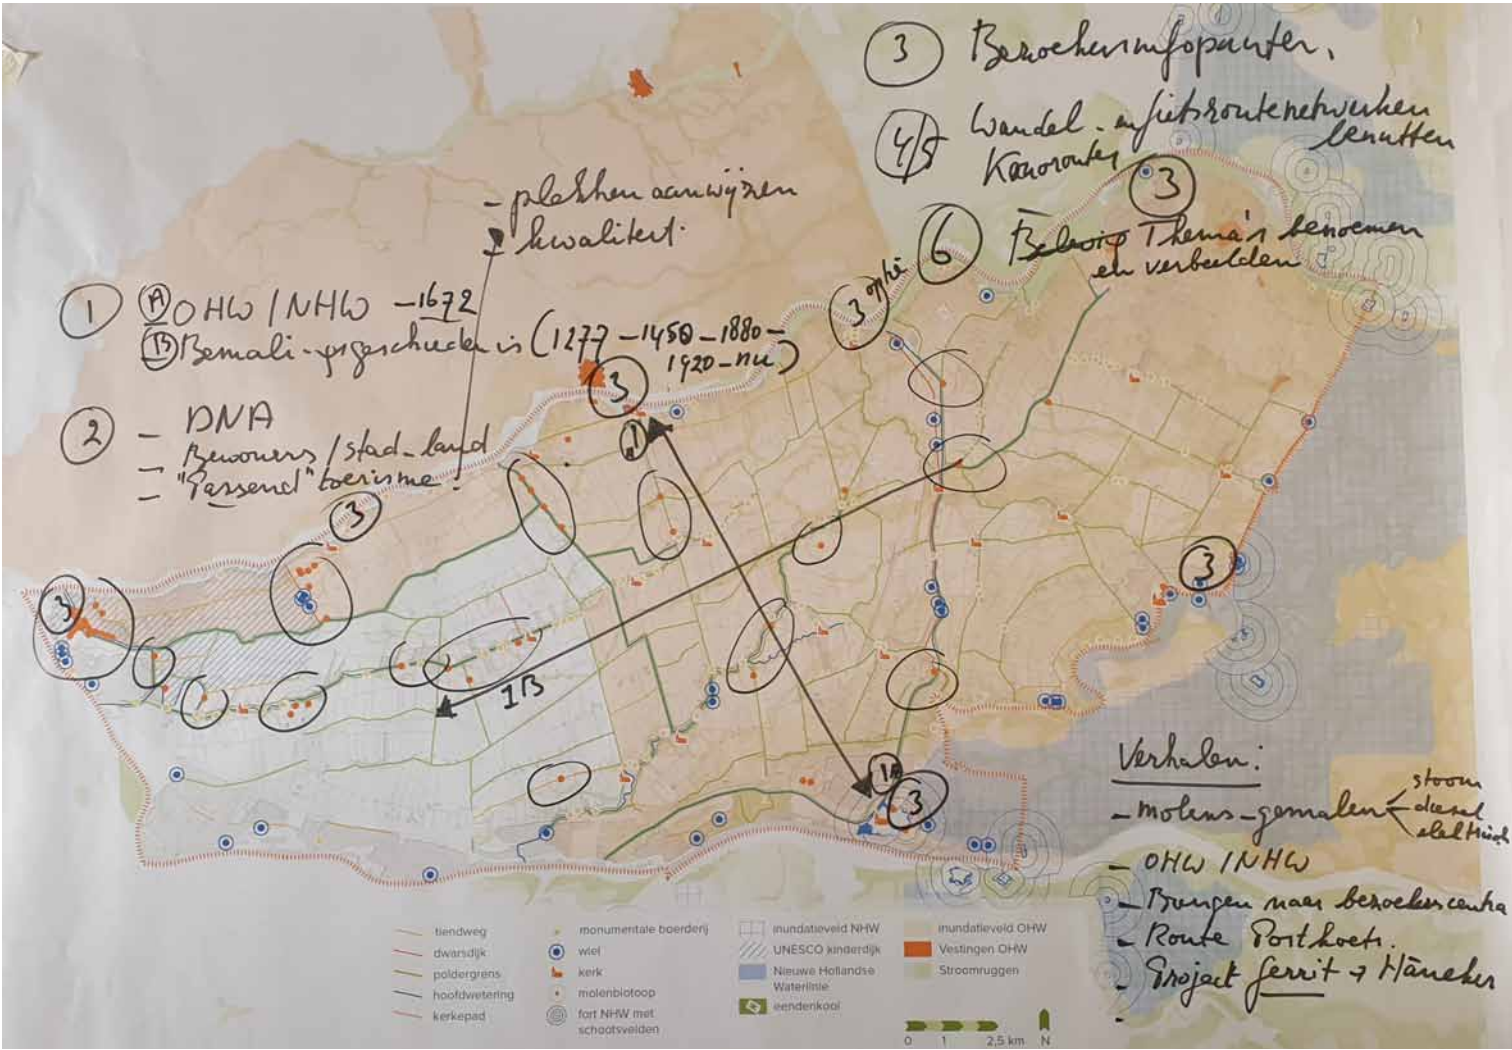 ③ Bezoekersinfopunten.
4/5 Wandel- en fietsroutenetwerken
benutten
Kanoroutes
③
- plekken aanwijzen
kwaliteit.
⑥ Thema's benoemen
en verbeelden
③ optie
① Ⓐ OHW / NHW - 1672
Ⓑ Bemali-gsgeschiedenis (1277 - 1450 - 1880 -
1920 - nu)
② - DNA
- Bewoners / stad-land
- "Passend" toerisme.
③
1A
③
③
③
1B
1A
③
Verhalen:
- molens - gemalen
stoom
diesel
elektrisch
- OHW / NHW
- naar bezoekerscentra
- Route Posthoets.
- Project Gerrit →
-
tiendweg
dwarsdijk
poldergrens
hoofdwetering
kerkepad
monumentale boerderij
wiel
kerk
molenbiotoop
fort NHW met
schootsvelden
inundatieveld NHW
UNESCO kinderdijk
Nieuwe Hollandse
Waterlinie
eendenkooi
inundatieveld OHW
Vestingen OHW
Stroomruggen
0 1 2,5 km N